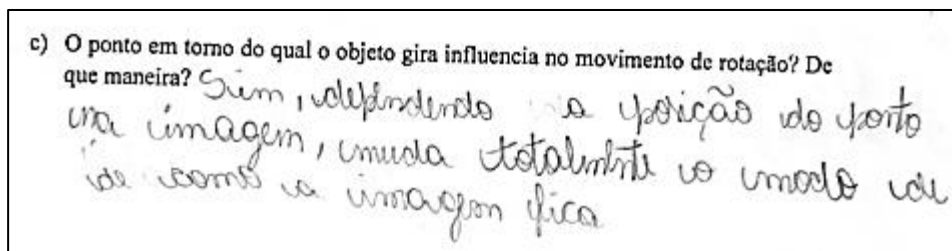 c) O ponto em torno do qual o objeto gira influencia no movimento de rotação? De
que maneira? Sim, dependendo a posição do ponto
na imagem, muda totalmente o modo de
de como a imagem fica